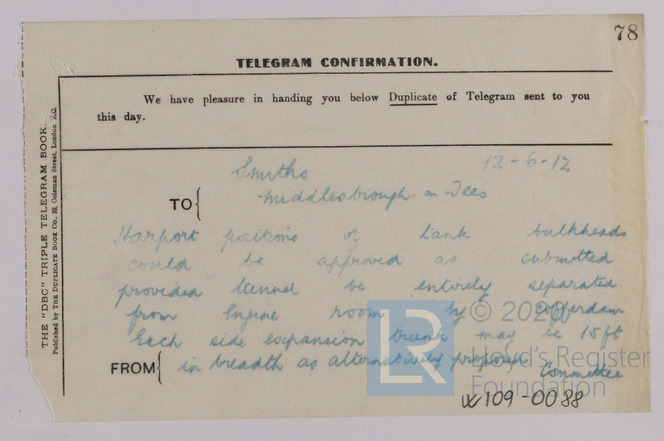 78
TELEGRAM CONFIRMATION.
We have pleasure in handing you below Duplicate of Telegram sent to you
this day.
THE "DBC" TRIPLE TELEGRAM BOOK.
Published by THE DUPLICATE BOOK CO., 22, Coleman Street, London
Smiths 12-6-12
TO Middlesbrough-on-Tees
Harport positions of tank bulkheads
could be approved as submitted
provided tunnel be entirely separated
from Engine room by cofferdam
Each side expansion trunk may be 15ft
FROM in breadth as alternatively proposed
Committee
LR © 2020
Lloyd's Register
Foundation
W109-0088